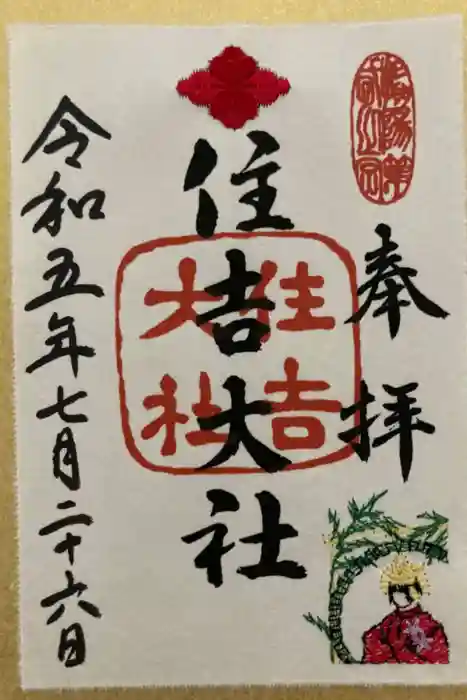 奉拝
住吉大社
住吉
大社
令和五年七月二十六日